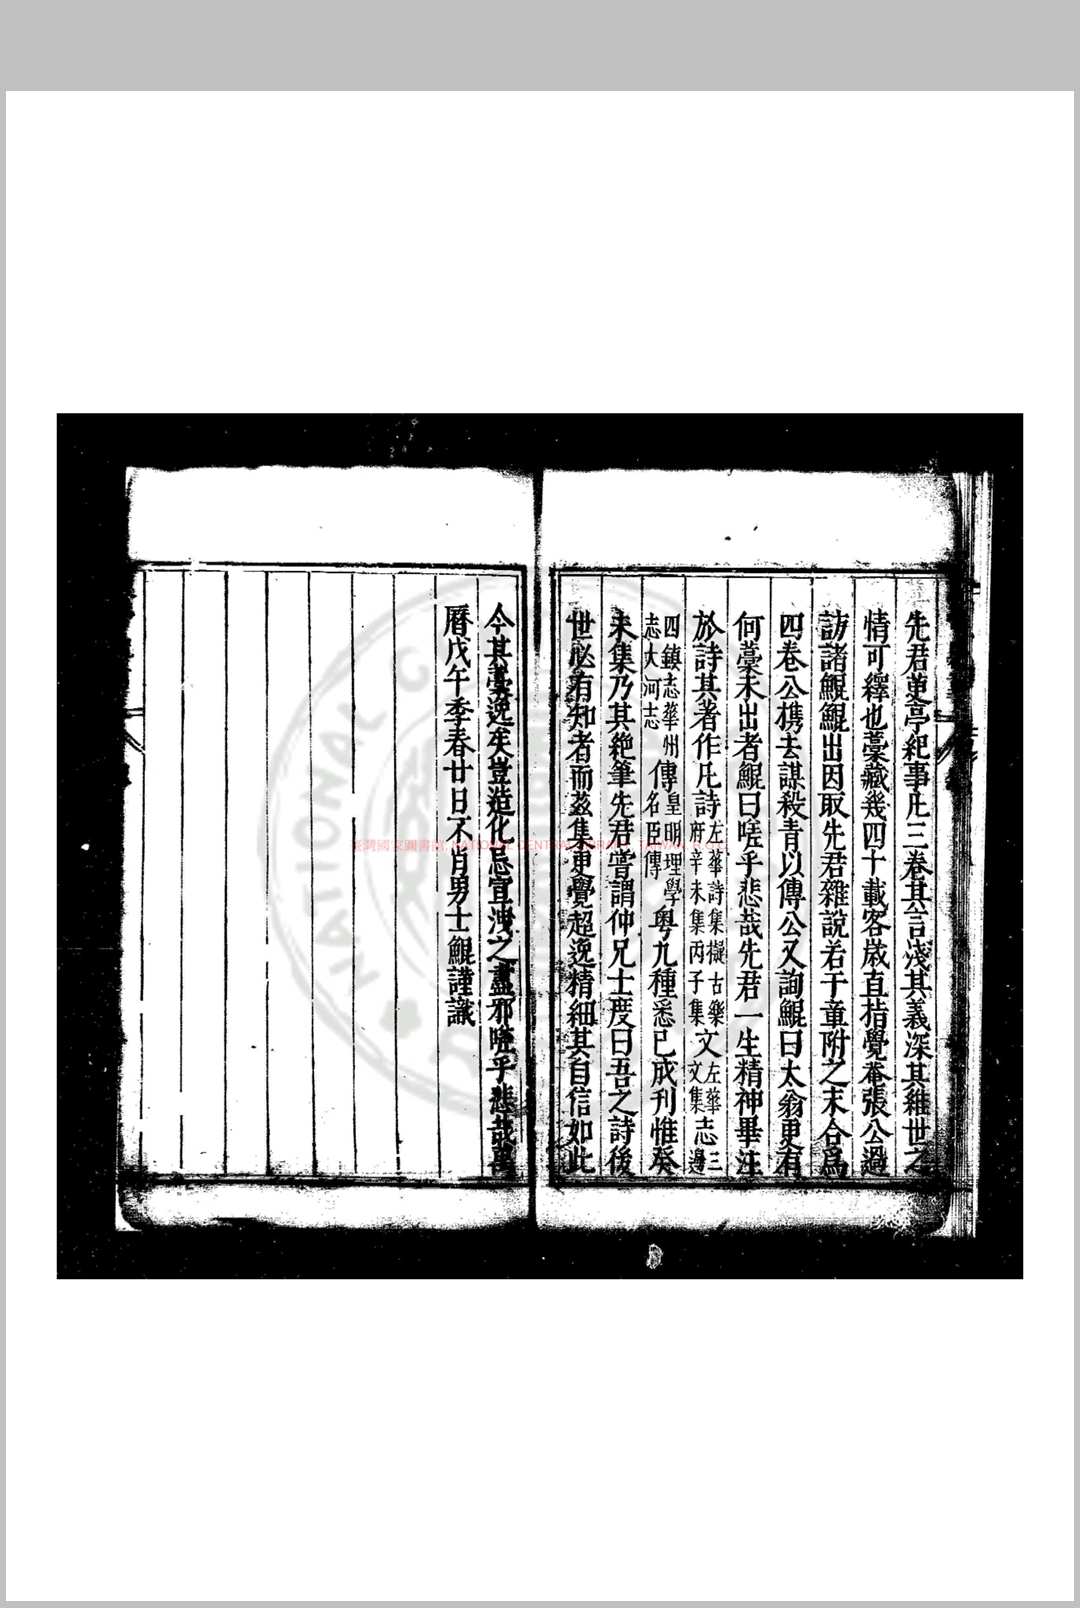 先君亭紀事凡三卷其言淺其義深其維世之
情可繹也藁藏幾四十載客歲直指覺菴張公過
訪諸鯤鯤出因取先君雜說若干章附之末合爲
四卷公携去謀殺青以傳公又詢鯤曰太翁更有
何藁未出者鯤曰嗟乎悲哉先君一生精神畢注
於詩其著作凡詩左華詩集擬古樂府辛未集丙子集文左華文集志三邊
四鎮志華州志大河志傳皇明理學名臣傳粤九種悉已成刋惟癸
未集乃其絶筆先君嘗謂仲兄士度曰吾之詩後
世必有知者而茲集更覺超逸精細其自信如此
今其藁逸矣豈造化忌宣洩之盡邪嗟乎悲哉萬
曆戊午季春廿日不肖男士鯤謹識